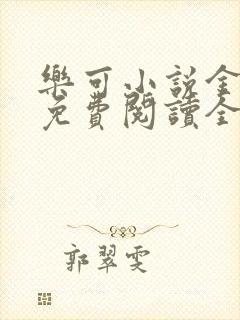 樂可小說全
免費閱讀全
郭翠雯